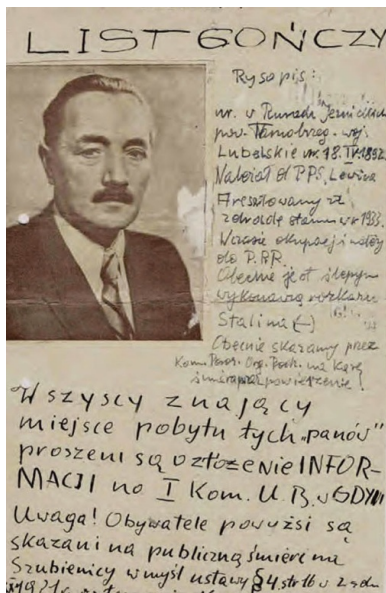 LIST GOŃCZY
Rysopis:
ur. w
pow. Tarnobrzeg. woj.
Lubelskie ur. 18.IV.1892.
Należał do PPS, Lewica
Aresztowany za
zdradę stanu w r 1933.
W czasie okupacji
do P.P.R.
Obecnie jest ślepym
wykonawcą rozkazu
Stalina (-)
Obecnie skazany przez
Kom. Org. na karę
śmierci powieszenie!
Wszyscy znający
miejsce pobytu tych "panów"
proszeni są o złożenie INFOR-
MACJI na I Kom. U.B. w GDYNI
Uwaga! Obywatele powyżsi są
skazani na publiczną śmierć na
Szubienicy w myśl ustawy § 4 str 16 v z